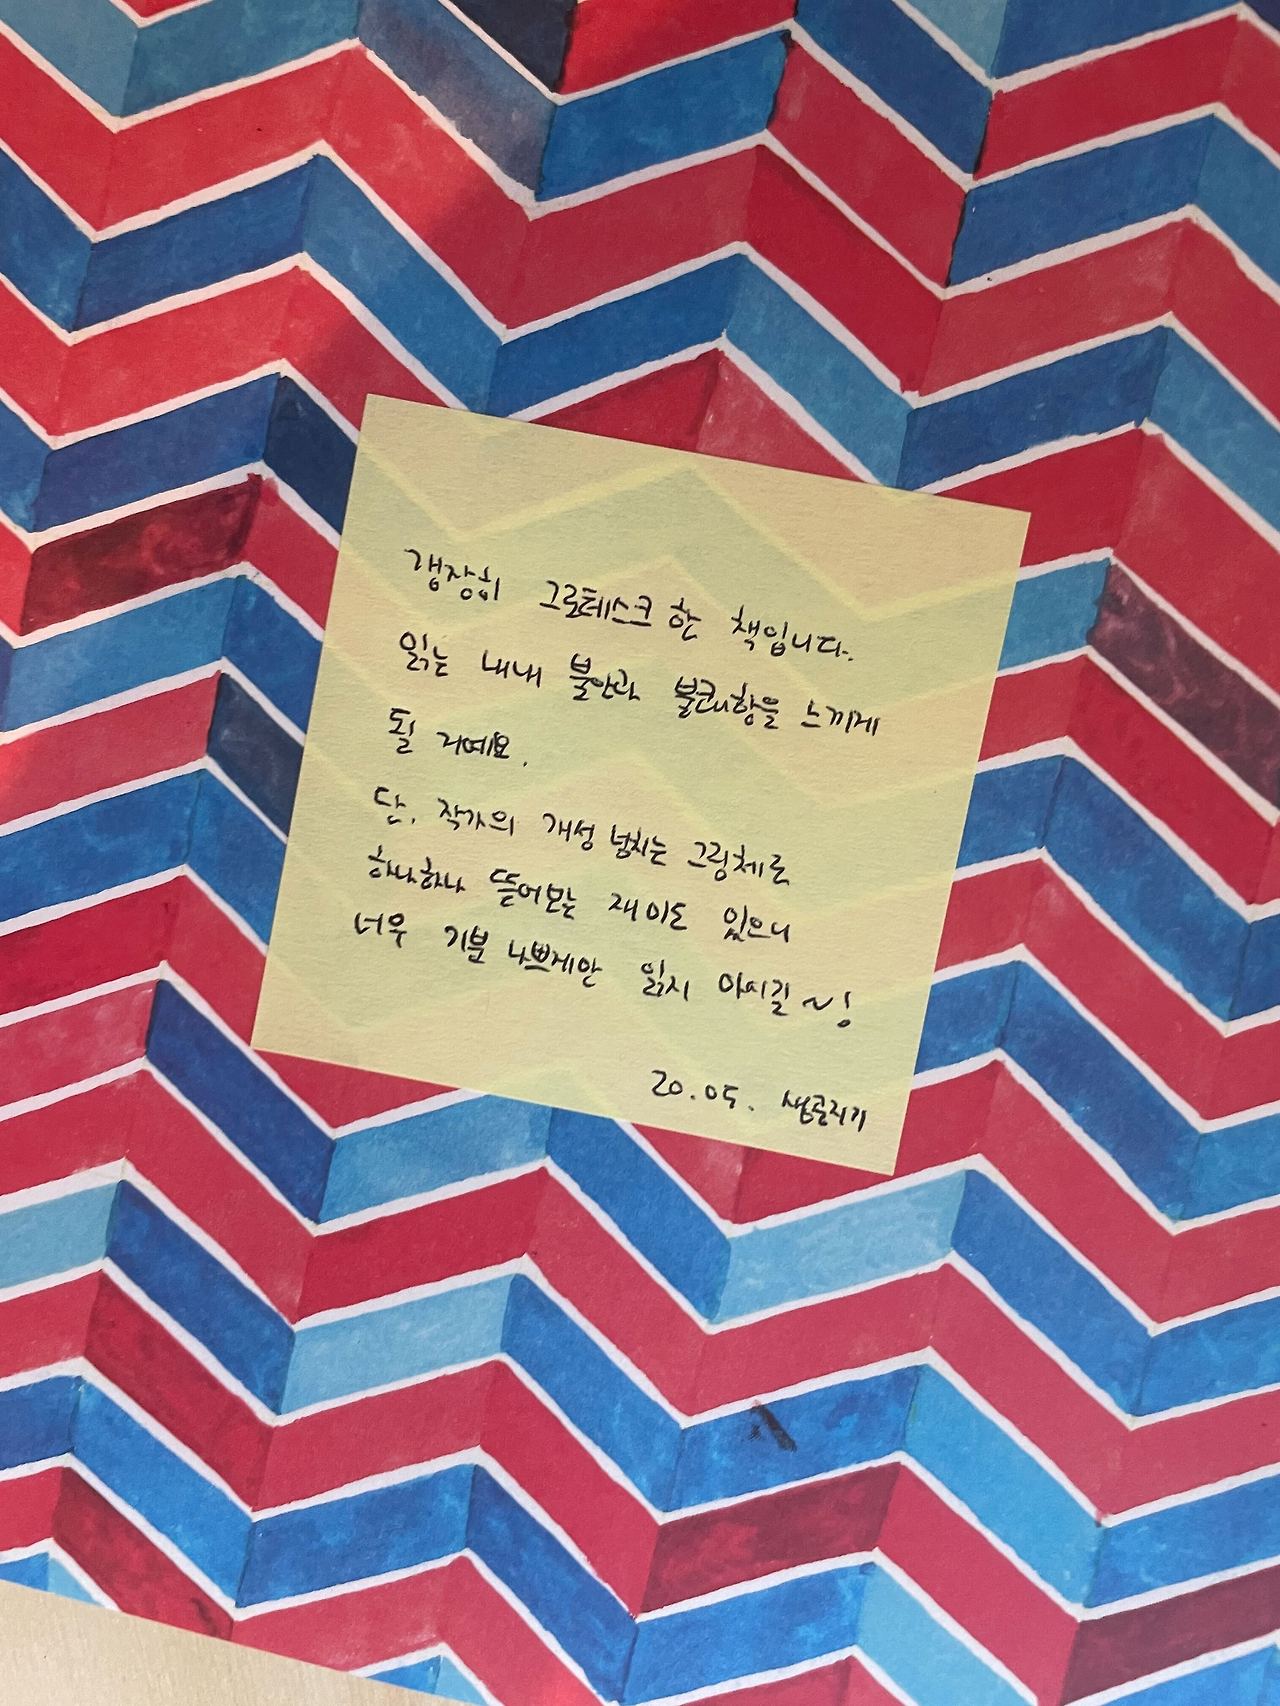 굉장히 그로테스크한 책입니다.
읽는 내내 불안과 불쾌함을 느끼게
될 거예요.
단, 작가의 개성 넘치는 그림체로
하나하나 뜯어보는 재미도 있으니
너무 기분 나쁘게만 읽지 마시길~!
20.05. 샘골지기